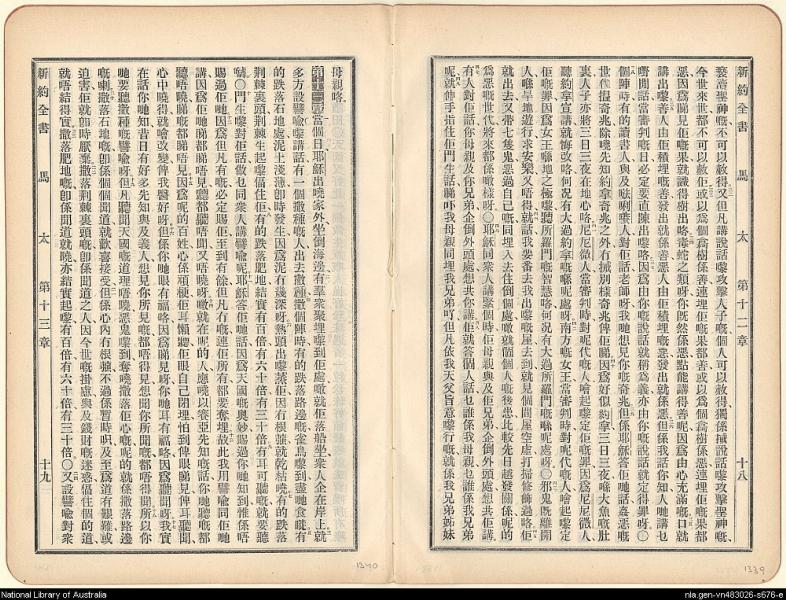 新約全書 馬太 第十二章 十八
聖神嘅不可以赦得又但凡講說話攻擊人子嘅個人可以赦得獨係講說話攻擊聖神嘅
今世來世都不可以赦佢或以為個樹係善連埋佢嘅果都善或以為個樹係惡連埋佢嘅果都
惡因為睇見佢嘅果就識得樹出咯毒蛇之類呀你既然係惡點能講得善呢因為由心充滿嘅口就
講出嚟善人由佢積埋嘅善發出就係善惡人由佢積埋嘅惡發出就係惡但係我話你知人哋講
嘅閒話當審判嘅日必定要直陳出嚟咯因為由你嘅說話就稱為義亦由你嘅說話就定得罪呀〇
個陣時有的讀書人與及嘩唎㘔人對佢話老師呀我哋想見你嘅奇兆但係耶穌答佢哋話姦惡嘅
世代搵奇兆除曉先知約拿奇兆之外有別樣奇兆俾佢睇因為好似約拿三日三夜喺大魚嘅肚
裏人子亦將三日三夜在地心咯尼尼微人當審判時對呢代嘅人起嚟定佢嘅罪因為尼尼微人
聽約拿宣講就悔改咯何況有大過約拿嘅喺呢處呀南方嘅女王當審判時對呢代嘅人起嚟定
佢嘅罪因為女王喺地之極嚟聽所羅門嘅智慧咯何況有大過所羅門嘅喺呢處呀〇邪鬼既離開
人喺旱地遊行求安樂又唔得就話我要番去我出嚟嘅屋去到就見個間屋空虛打掃修飾過咯佢
就出去又帶七隻鬼惡過自己嘅同埋入去住倒個處噉就個人嘅後患比較先日越發關係呢的
為惡嘅世代將來都係噉樣呀〇耶穌同眾人講緊個時佢母親與及佢兄弟企倒外頭處想共佢講
有人對佢話你母親及你兄弟企倒外頭處想共你講佢就答個人話乜誰係我母親乜誰係我兄弟
呢就伸手指住佢門生話睇吓我母親同埋我兄弟吖但凡依我天父旨意嚟行嘅就係我兄弟姊妹
新約全書 馬太 第十三章 十九
母親咯
第十三章當個日耶穌出曉家外坐倒海邊有羣眾聚埋嚟到佢處噉就佢落船坐眾人企在岸上就
多方設譬喻嚟講話有一個撒種嘅人出去撒種撒個陣時有的跌落路邊嘅雀鳥嚟到盡哋食
的跌落石地處泥土淺薄卽時發生因為泥冇幾深呀熱頭出嚟佢因冇根就乾枯曉有的跌落
荊棘裏頭荊棘生起嚟住佢有的跌落肥地結實有百倍有六十倍有三十倍有耳可聽嘅就要聽
〇門生嚟對佢話做乜同眾人講譬喻呢耶穌答佢哋話因為天國嘅奧妙賜過你哋知到惟係唔
賜過佢哋因為但凡有嘅必定賜佢至到有餘但凡冇嘅連佢所有都要奪埋故此我用譬喻同佢哋
講因為佢哋睇都唔睇見聽都唔聽聞又唔曉呀噉就在呢的人應曉以賽亞先知嘅話你哋聽嘅都
聽唔曉睇嘅都睇唔見因為呢的百姓心係頑梗佢耳懶聽佢眼自己閉埋怕到俾眼睇見俾耳聽聞
心中曉得就改變俾我醫好呀但係你哋眼有福咯因為睇見呀你哋耳有福咯因為聽聞呀我實
在話你哋知昔日有好多先知與及義人想見你所見嘅都唔得見想聞你所聞嘅都唔得聞所以你
哋要聽撒種嘅譬喻呀但凡聽聞天國嘅道理唔曉嘅惡鬼嚟到奪曉撒落佢心嘅呢的就係撒落路邊
嘅撒落石地嘅卽係個個聞道就歡喜接受但係心內冇根不過係暫時及至為道有艱難或
迫害佢就卽時厭棄撒落荊棘裏頭嘅卽係聞道之人因今世嘅掛慮與及錢財嘅迷惑住個的道
就唔結得實撒落肥地嘅卽係聞道就曉亦結實起嚟有百倍有六十倍有三十倍〇又設譬喻對眾
1340
1339
National Library of Australia
nla.gen-vn483026-s576-e